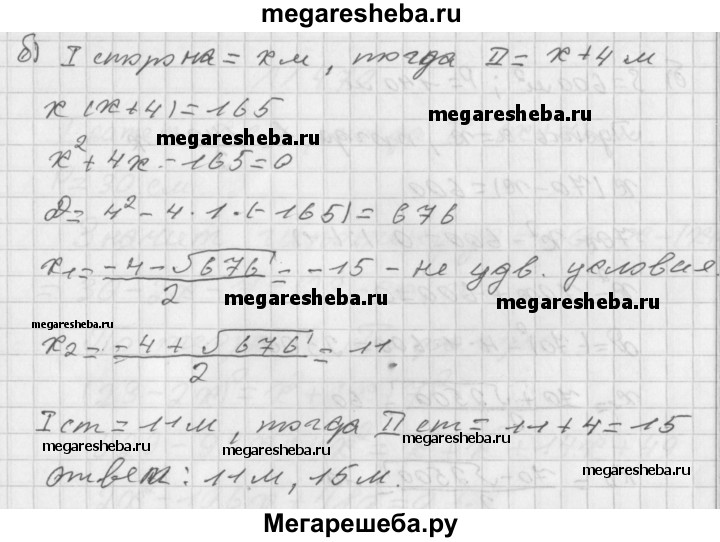 megaresheba.ru
б) I сторона = x м, тогда II = x+4 м
x (x+4) = 165
megaresheba.ru
megaresheba.ru
x² + 4x - 165 = 0
D = 4² - 4 · 1 · (-165) = 676
x₁ = (-4 - √676)/2 = -15 - не удв. условия.
megaresheba.ru
megaresheba.ru
megaresheba.ru
x₂ = (-4 + √676)/2 = 11.
I ст = 11 м, тогда II ст = 11 + 4 = 15
megaresheba.ru
megaresheba.ru
megaresheba.ru
ответ: 11 м, 15 м.
megaresheba.ru
Мегарешеба.ру